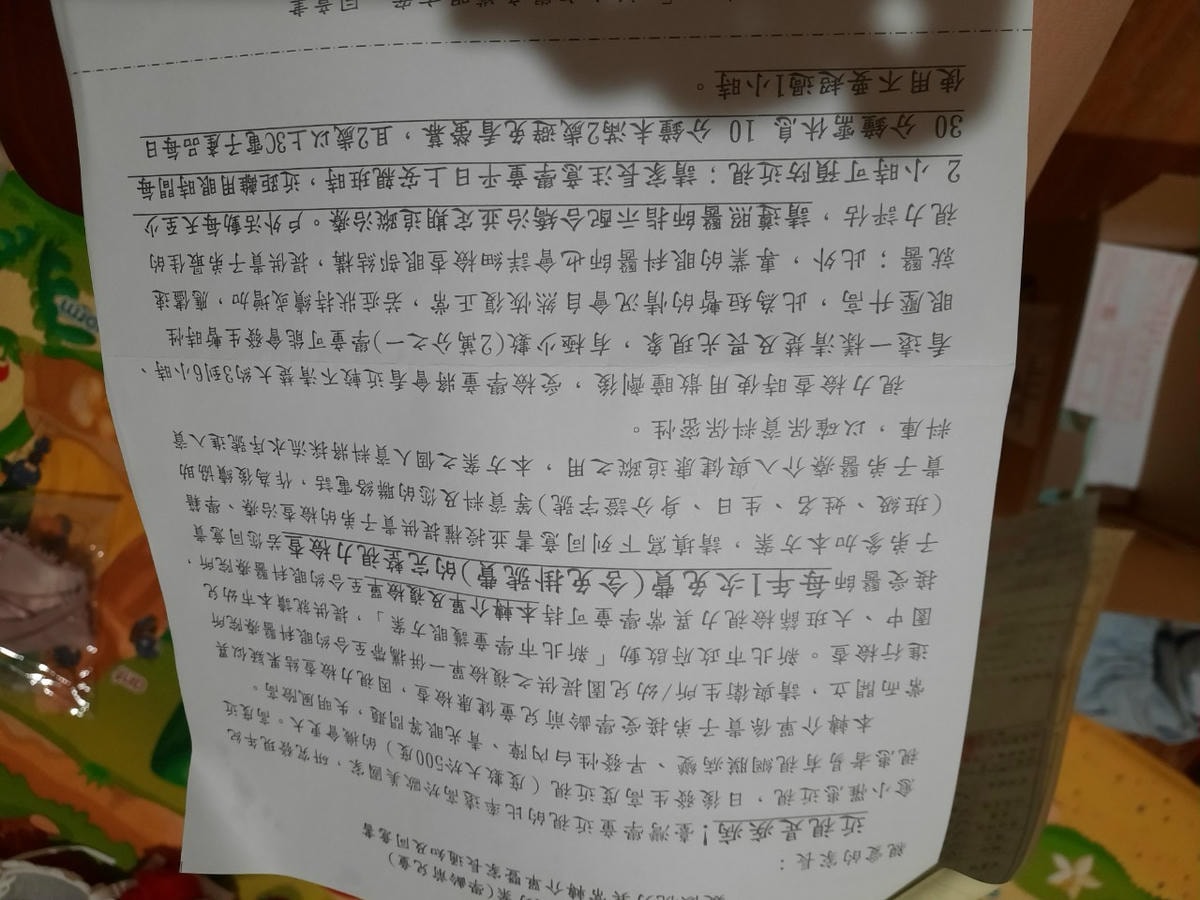 常轉介單暨家長通知及同意書
案(學齡前兒童)
親愛的家長：
近視是疾病！臺灣學童近視的比率遠高於歐美國家，研究發現年紀
愈小罹患近視，日後發生高度近視（度數大於500度）的機會更大。高度近
視患者易有視網膜病變、早發性白內障、青光眼等問題，失明風險高。
本轉介單係貴子弟接受學齡前兒童健康檢查，因視力檢查結果疑似異
常而開立，請與衛生所/幼兒園提供之複檢單一併攜帶至合約眼科醫療院所
進行檢查。新北市政府啟動「新北市學童護眼方案」，提供就讀本市幼兒
園中、大班篩檢視力異常學童可持本轉介單及複檢單至合約眼科醫療院所，
接受醫師每年1次免費(含免掛號費)的完整視力檢查若您同意貴
子弟參加本方案，請填寫下列同意書並授權提供貴子弟的檢查治療、學籍
（班級、姓名、生日、身分證字號)等資料及您的聯絡電話，作為後續協助
貴子弟醫療介入與健康追蹤之用，本方案之個人資料將採流水序號進入資
料庫，以確保資料保密性。
視力檢查時使用散瞳劑後，受檢學童將會看近較不清楚大約3到6小時、
看遠一樣清楚及畏光現象，有極少數(2萬分之一)學童可能會發生暫時性
眼壓升高，此為短暫的情況會自然恢復正常，若症狀持續或增加，應儘速
就醫；此外，專業的眼科醫師也會詳細檢查眼部結構，提供貴子弟最佳的
視力評估，請遵照醫師指示配合矯治並定期追蹤治療。戶外活動每天至少
2小時可預防近視；請家長注意學童平日上安親班時，近距離用眼時間每
30 分鐘需休息 10 分鐘未滿2歲避免看螢幕，且2歲以上3C電子產品每日
使用不要超過1小時。